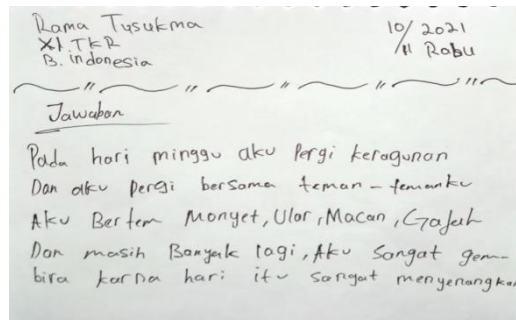 Rama Tusukma
10/ 2021
XI.TKR
/11 Rabu
B. indonesia
Jawaban
Pada hari minggu aku Pergi keragunan
Dan aku pergi bersama teman-temanku
Aku Bertem Monyet, Ular, Macan, Gajah
Dan masih Banyak lagi, Aku Sangat gem-
bira karna hari itu sangat menyenangkan